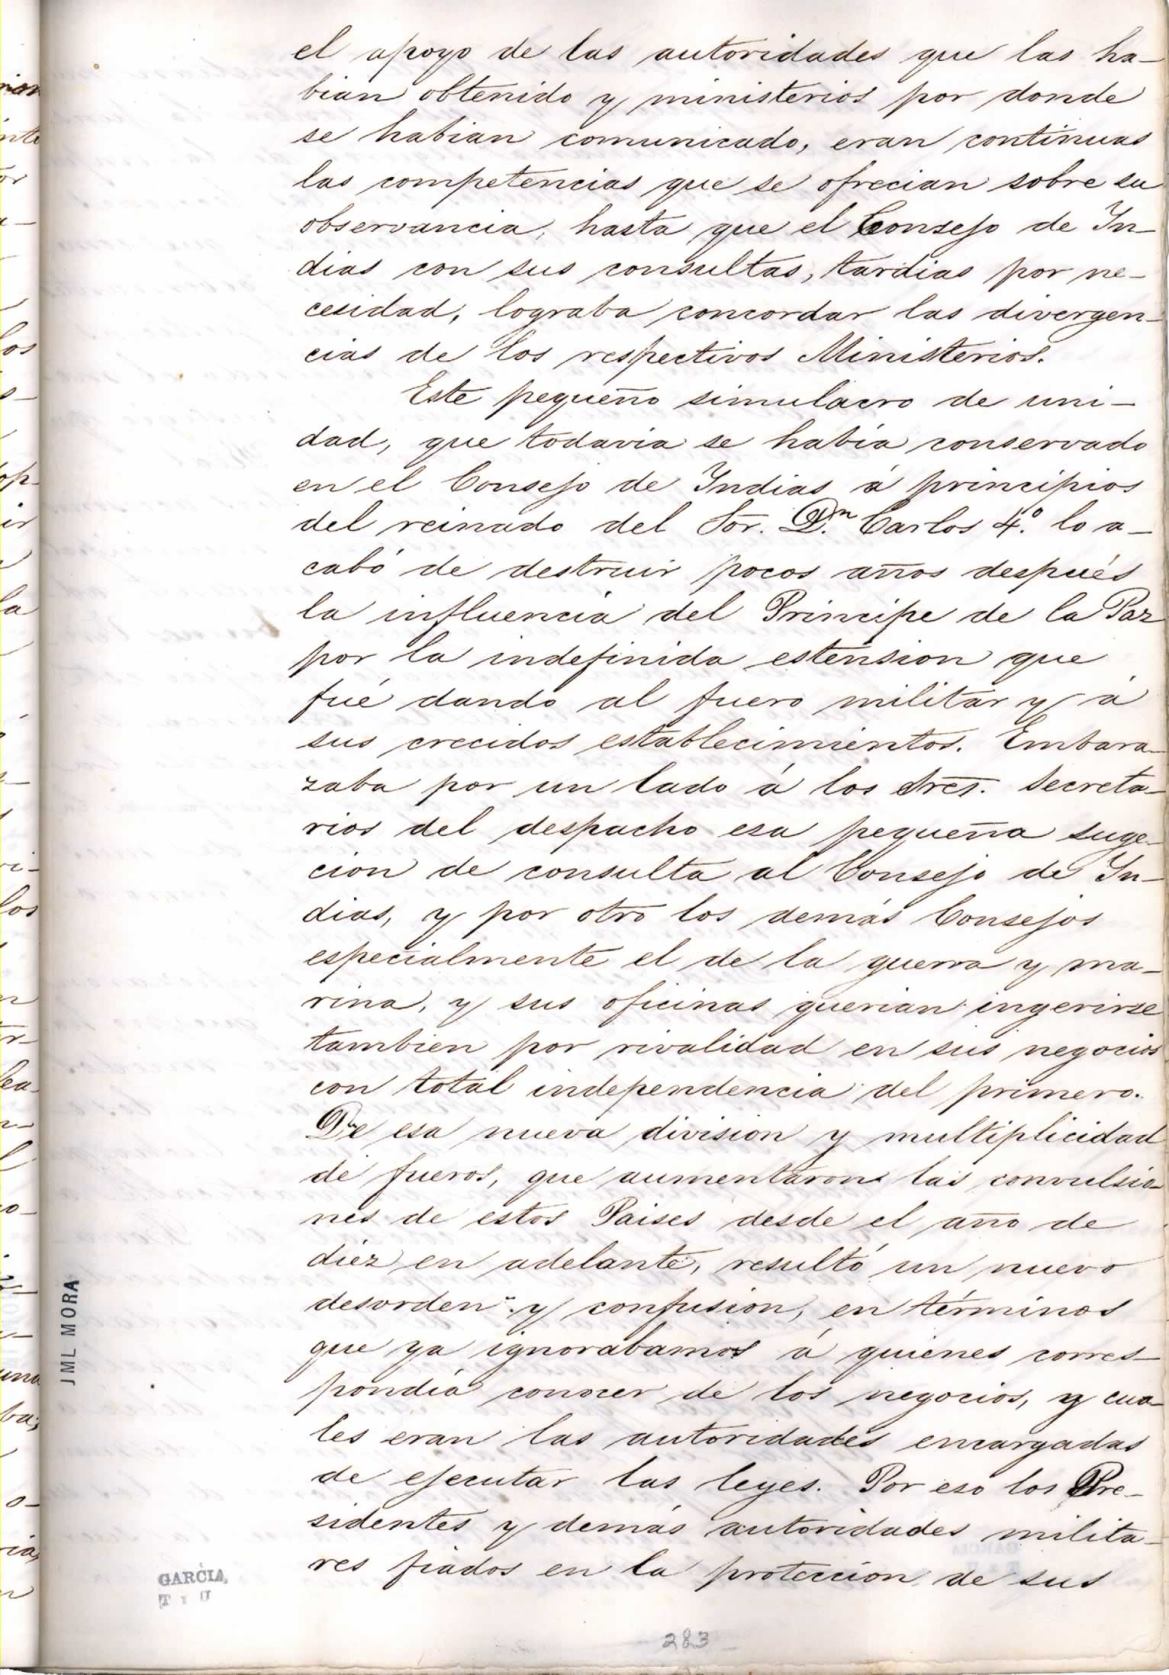 el apoyo de las autoridades que las ha-
bian obtenido y ministerios por donde
se habian comunicado, eran continuas
las competencias que se ofrecian sobre su
observancia, hasta que el Consejo de In-
dias con sus consultas, tardias por ne-
cesidad, lograba concordar las divergen-
cias de los respectivos Ministerios.
Este pequeño simulacro de uni-
dad, que todavia se había conservado
en el Consejo de Indias á principios
del reinado del Sor. Dn. Carlos 4º. lo a-
cabó de destruir pocos años después
la influencia del Principe de la Paz
por la indefinida estension que
fué dando al fuero militar y á
sus crecidos establecimientos. Embara-
zaba por un lado á los Sres. Secreta-
rios del despacho esa pequeña suge-
cion de consulta al Consejo de In-
dias, y por otro los demás Consejos
especialmente el de la guerra y ma-
rina, y sus oficinas querian ingerirse
tambien por rivalidad en sus negocios
con total independencia del primero.
De esa nueva division y multiplicidad
de fueros, que aumentaron las convulsio-
nes de estos Paises desde el año de
diez en adelante, resultó un nuevo
desorden y confusion, en términos
que ya ignorabamos á quienes corres-
pondía conocer de los negocios, y cua-
les eran las autoridades encargadas
de ejecutar las leyes. Por eso los Pre-
sidentes y demás autoridades milita-
res fiados en la proteccion de sus
JML MORA
GARCÍA,
T y U
283